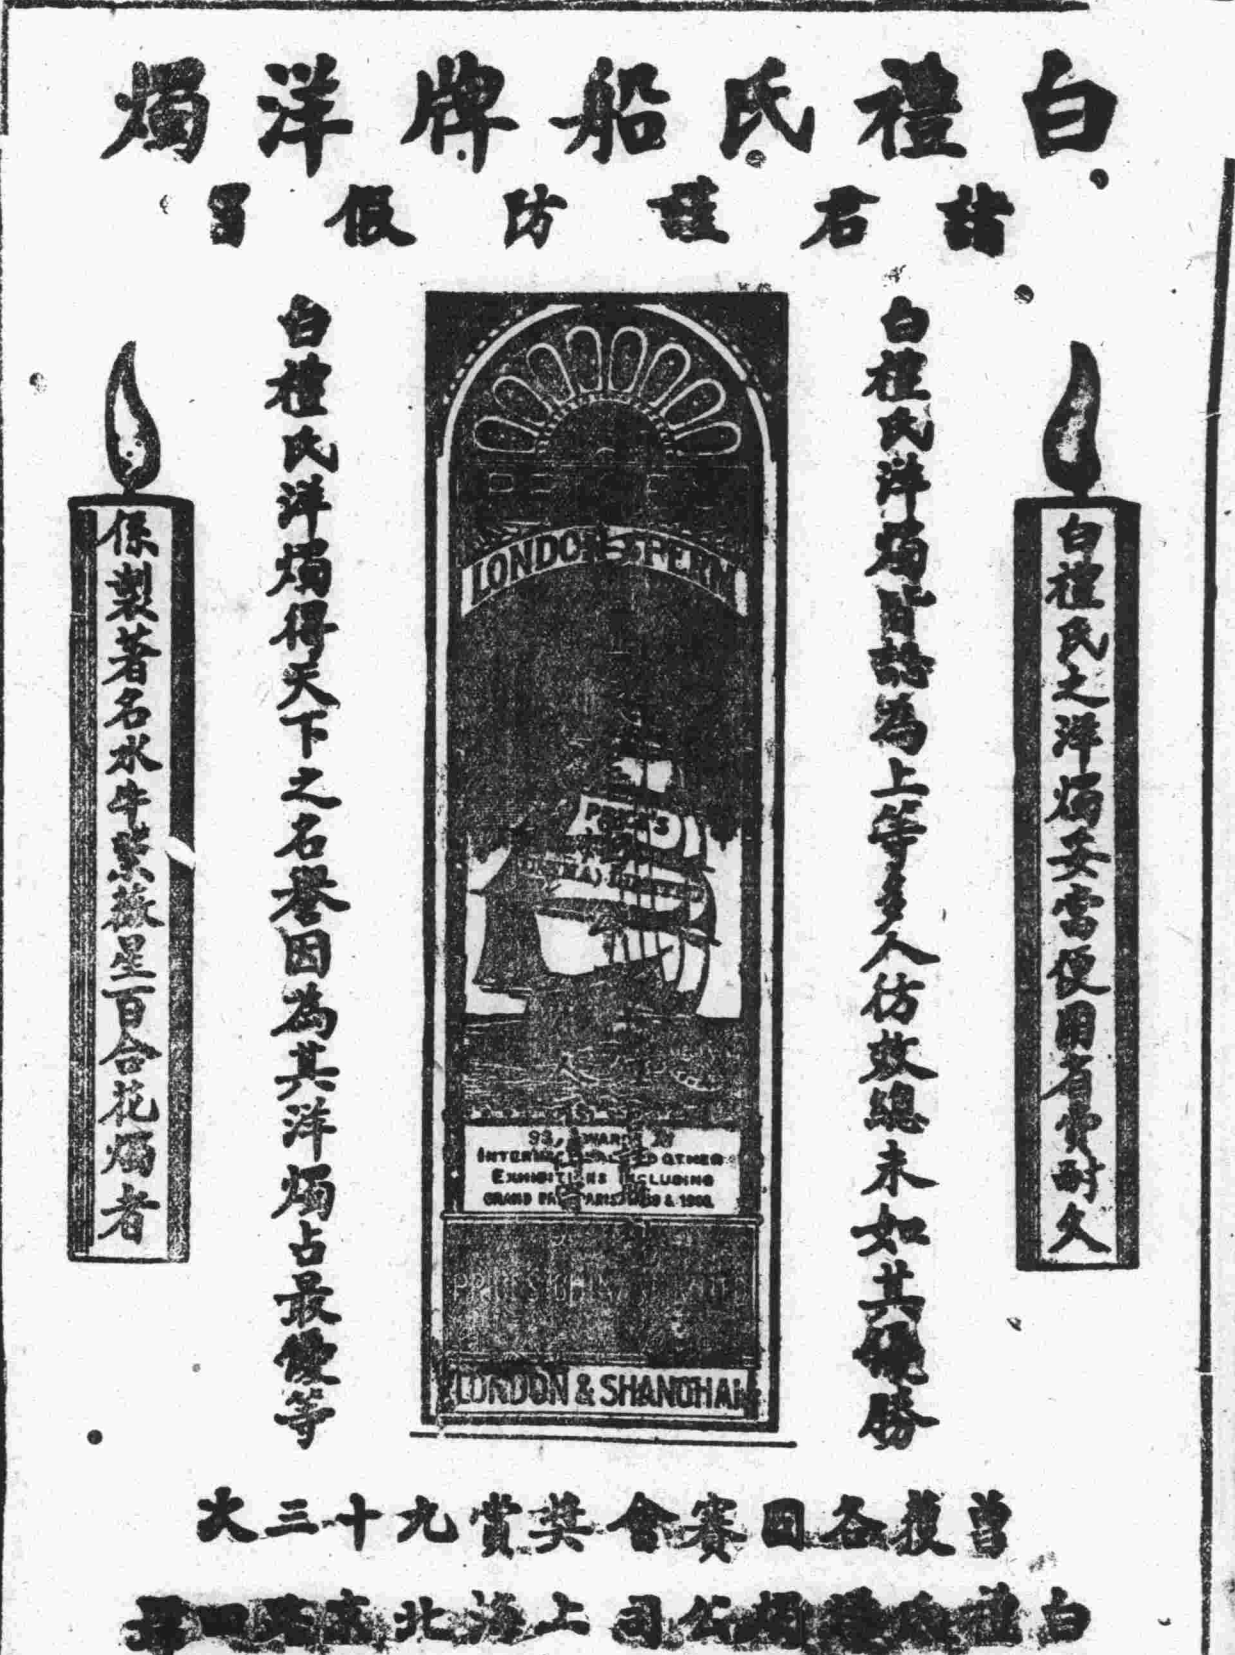 白禮氏船牌洋燭
諸君謹防假冒
白禮氏之洋燭妥當便用省費耐久
白禮氏洋燭皆認為上等多人仿效總未如其優勝
LONDON SPERM
PRICE'S
(CHINA) LIMITED
93, AWARDS AT
INTERNATIONAL AND OTHER
EXHIBITIONS INCLUDING
GRAND PRIX PARIS & 1900.
LONDON & SHANGHAI
白禮氏洋燭得天下之名譽因為其洋燭占最優等
係製著名水牛紫薇星百合花燭者
曾獲各國賽會獎賞九十三次
白禮氏燭公司上海北京路四號